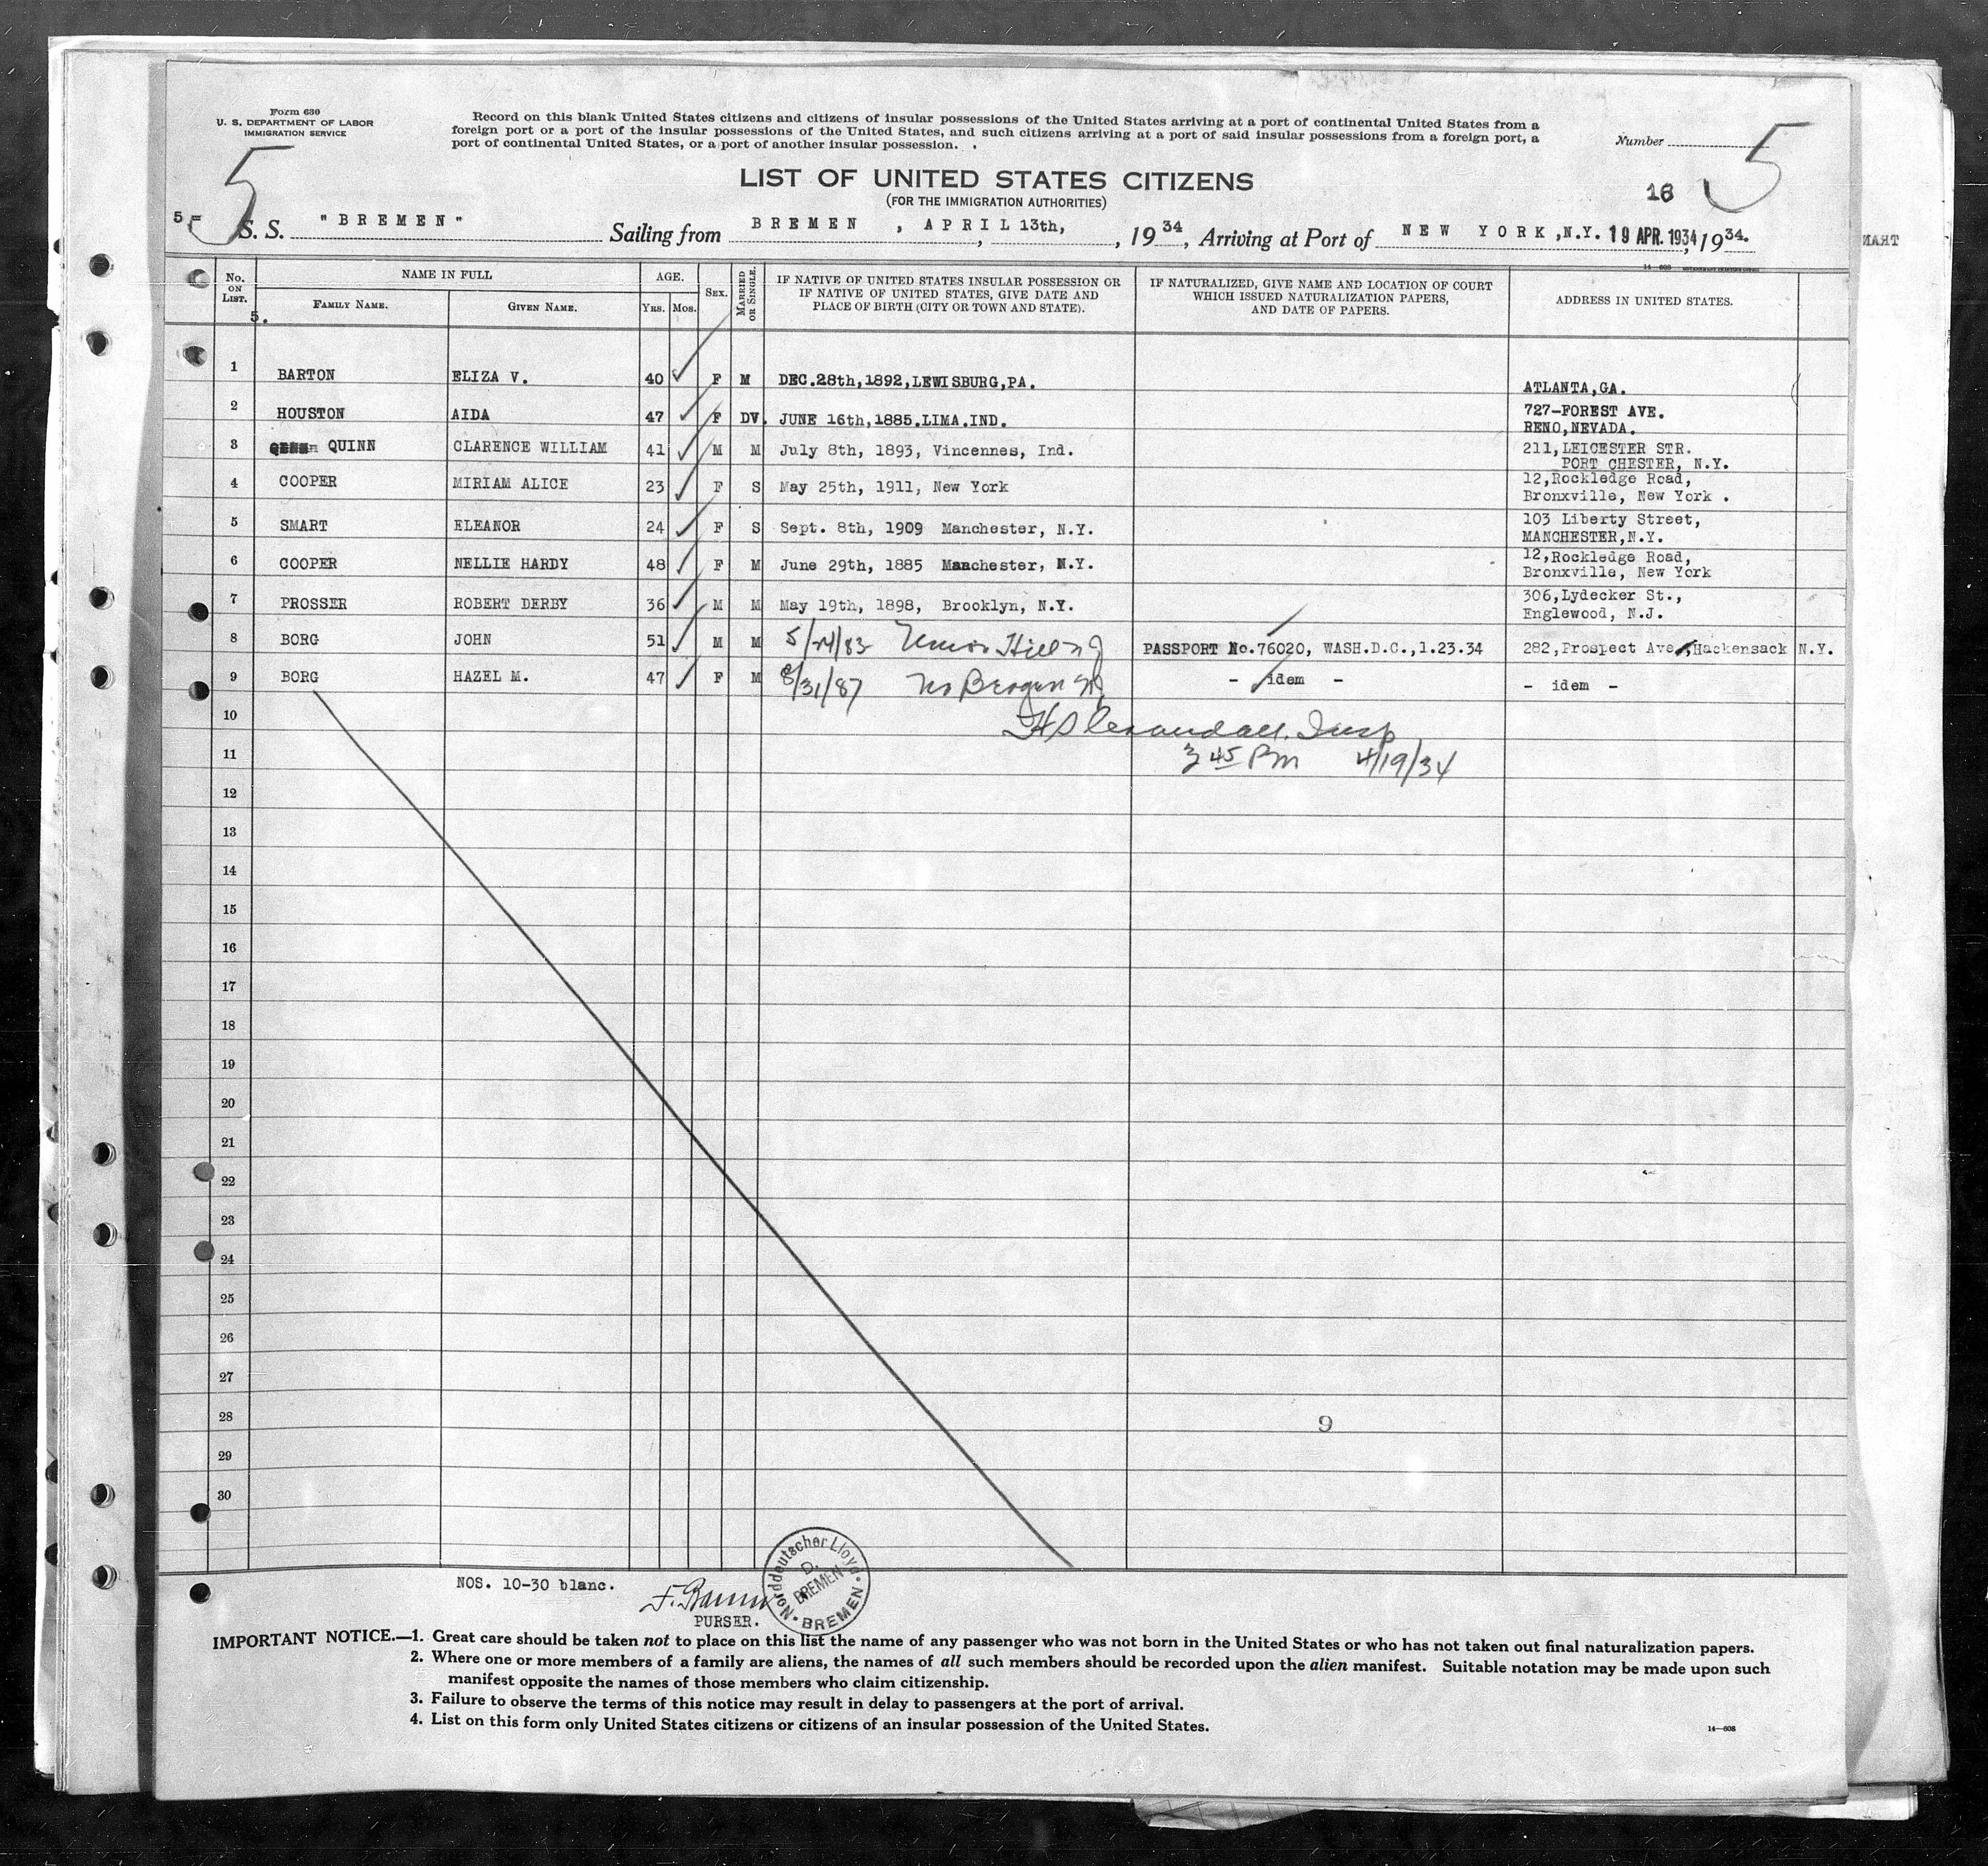 Form 630
U. S. DEPARTMENT OF LABOR
IMMIGRATION SERVICE
Record on this blank United States citizens and citizens of insular possessions of the United States arriving at a port of continental United States from a
foreign port or a port of the insular possessions of the United States, and such citizens arriving at a port of said insular possessions from a foreign port, a
port of continental United States, or a port of another insular possession.
Number
5
5
LIST OF UNITED STATES CITIZENS
(FOR THE IMMIGRATION AUTHORITIES)
16
5.-
S. S. "BREMEN" Sailing from BREMEN, APRIL 13th, , 1934, Arriving at Port of NEW YORK, N.Y. 19 APR. 1934, 1934.
TRAN
14-608
No. ON LIST.
NAME IN FULL
FAMILY NAME.
GIVEN NAME.
AGE.
YRS. MOS.
SEX.
MARRIED OR SINGLE.
IF NATIVE OF UNITED STATES INSULAR POSSESSION OR
IF NATIVE OF UNITED STATES, GIVE DATE AND
PLACE OF BIRTH (CITY OR TOWN AND STATE).
IF NATURALIZED, GIVE NAME AND LOCATION OF COURT
WHICH ISSUED NATURALIZATION PAPERS,
AND DATE OF PAPERS.
ADDRESS IN UNITED STATES.
5.
1 BARTON ELIZA V. 40 F M DEC.28th,1892,LEWISBURG,PA. ATLANTA,GA.
2 HOUSTON AIDA 47 F DV. JUNE 16th,1885.LIMA.IND. 727-FOREST AVE.
RENO,NEVADA.
3 QUINN CLARENCE WILLIAM 41 M M July 8th, 1893, Vincennes, Ind. 211,LEICESTER STR.
PORT CHESTER, N.Y.
4 COOPER MIRIAM ALICE 23 F S May 25th, 1911, New York 12,Rockledge Road,
Bronxville, New York .
5 SMART ELEANOR 24 F S Sept. 8th, 1909 Manchester, N.Y. 103 Liberty Street,
MANCHESTER,N.Y.
6 COOPER NELLIE HARDY 48 F M June 29th, 1885 Manchester, N.Y. 12,Rockledge Road,
Bronxville, New York
7 PROSSER ROBERT DERBY 36 M M May 19th, 1898, Brooklyn, N.Y. 306,Lydecker St.,
Englewood, N.J.
8 BORG JOHN 51 M M 5/24/83 Union Hill NJ PASSPORT No.76020, WASH.D.C.,1.23.34 282,Prospect Ave.,Hackensack N.Y.
9 BORG HAZEL M. 47 F M 8/31/87 No Bergen NJ - idem - - idem -
10
11 3 45 PM 4/19/34
12
13
14
15
16
17
18
19
20
21
22
23
24
25
26
27
28 9
29
30
NOS. 10-30 blanc.
PURSER.
Norddeutscher Lloyd
D.
BREMEN
BREMEN
IMPORTANT NOTICE.—1. Great care should be taken not to place on this list the name of any passenger who was not born in the United States or who has not taken out final naturalization papers.
2. Where one or more members of a family are aliens, the names of all such members should be recorded upon the alien manifest. Suitable notation may be made upon such
manifest opposite the names of those members who claim citizenship.
3. Failure to observe the terms of this notice may result in delay to passengers at the port of arrival.
4. List on this form only United States citizens or citizens of an insular possession of the United States.
14—608